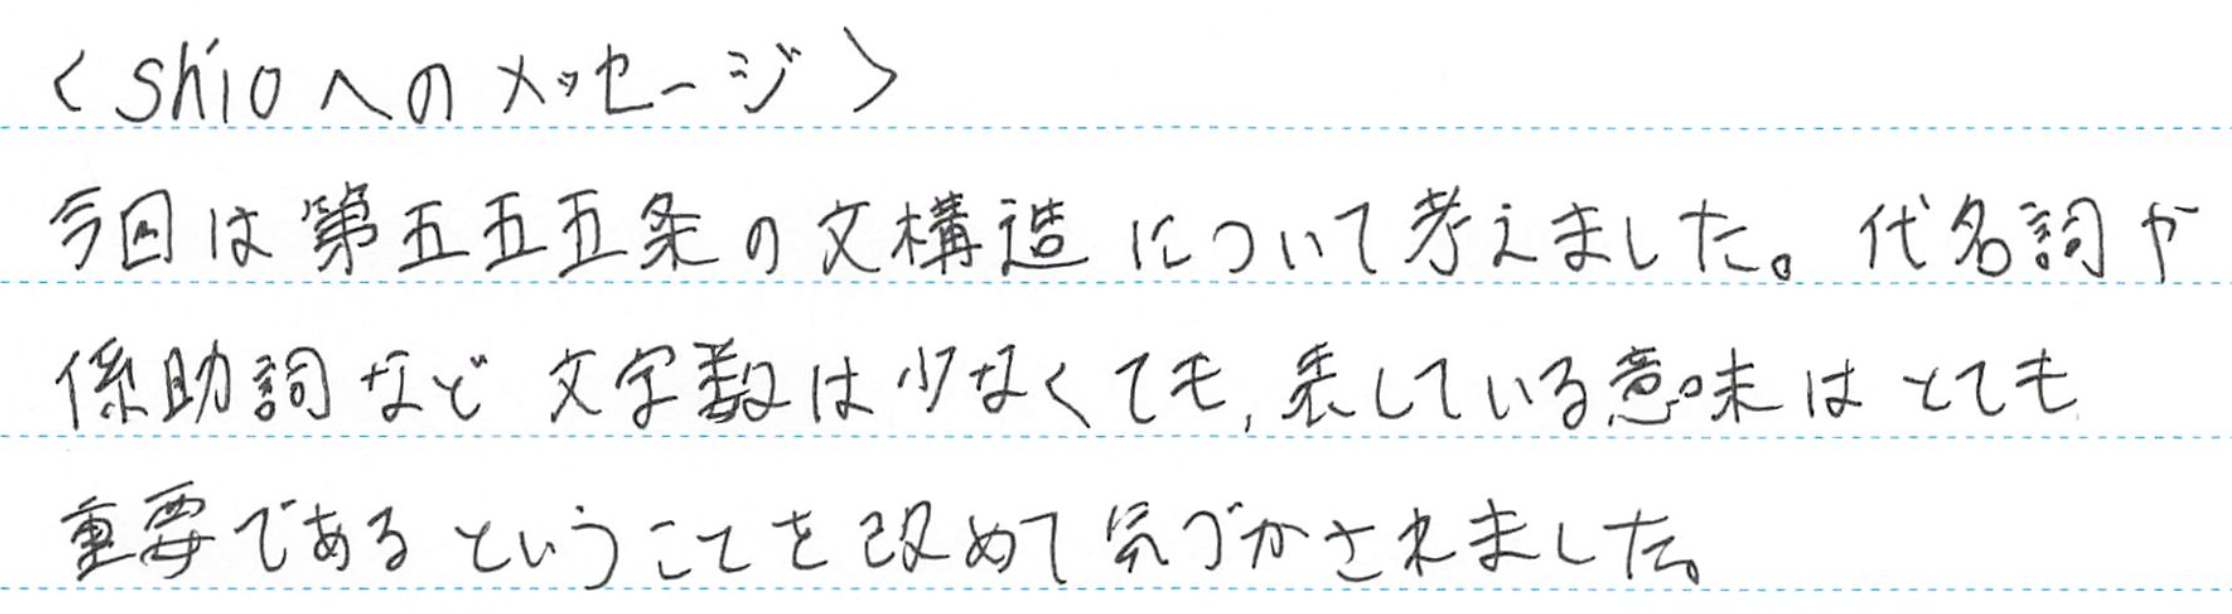 〈shioへのメッセージ〉
今回は第五五五条の文構造について考えました。代名詞や
係助詞など文字数は少なくても,表している意味はとても
重要であるということを改めて気づかされました。